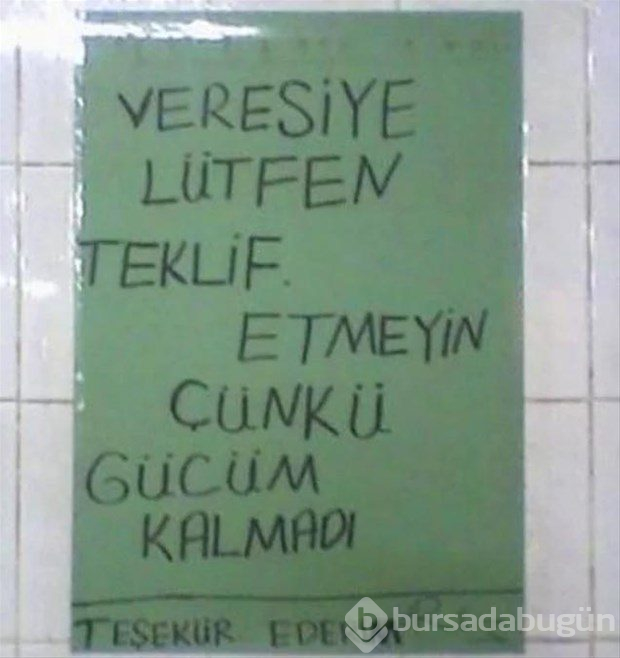 VERESİYE
LÜTFEN
TEKLİF.
ETMEYİN
ÇÜNKÜ
GÜCÜM
KALMADI
TEŞEKÜR
bursadabugün